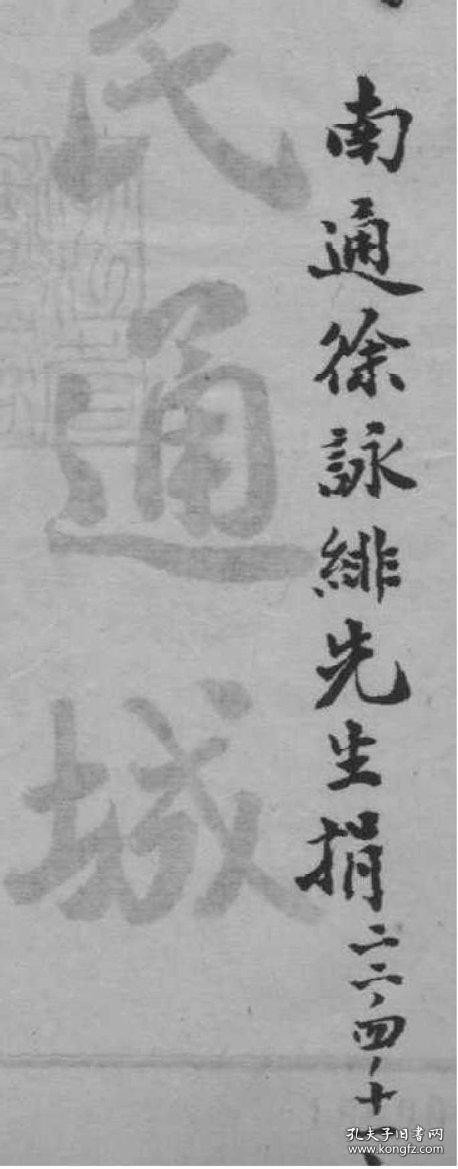 南通徐詠緋先生捐二六、四、十
氏通城
孔夫子旧书网
www.kongfz.com